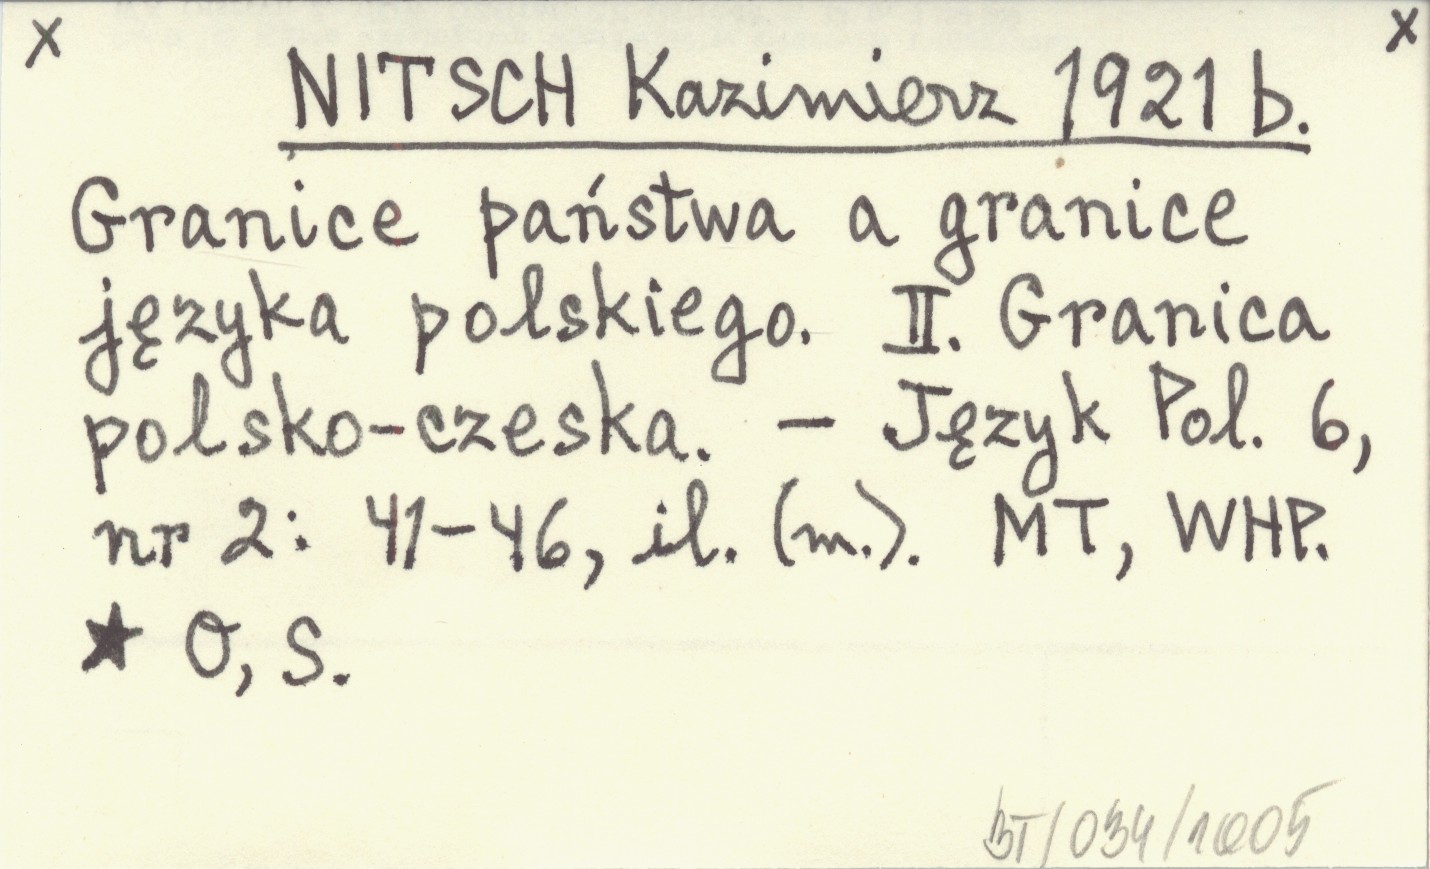 x x
NITSCH Kazimierz 1921 b.
Granice państwa a granice
języka polskiego. II. Granica
polsko-czeska. – Język Pol. 6,
nr 2: 41–46, il. (m.). MT, WHP.
★ O, S.
BT/034/1005